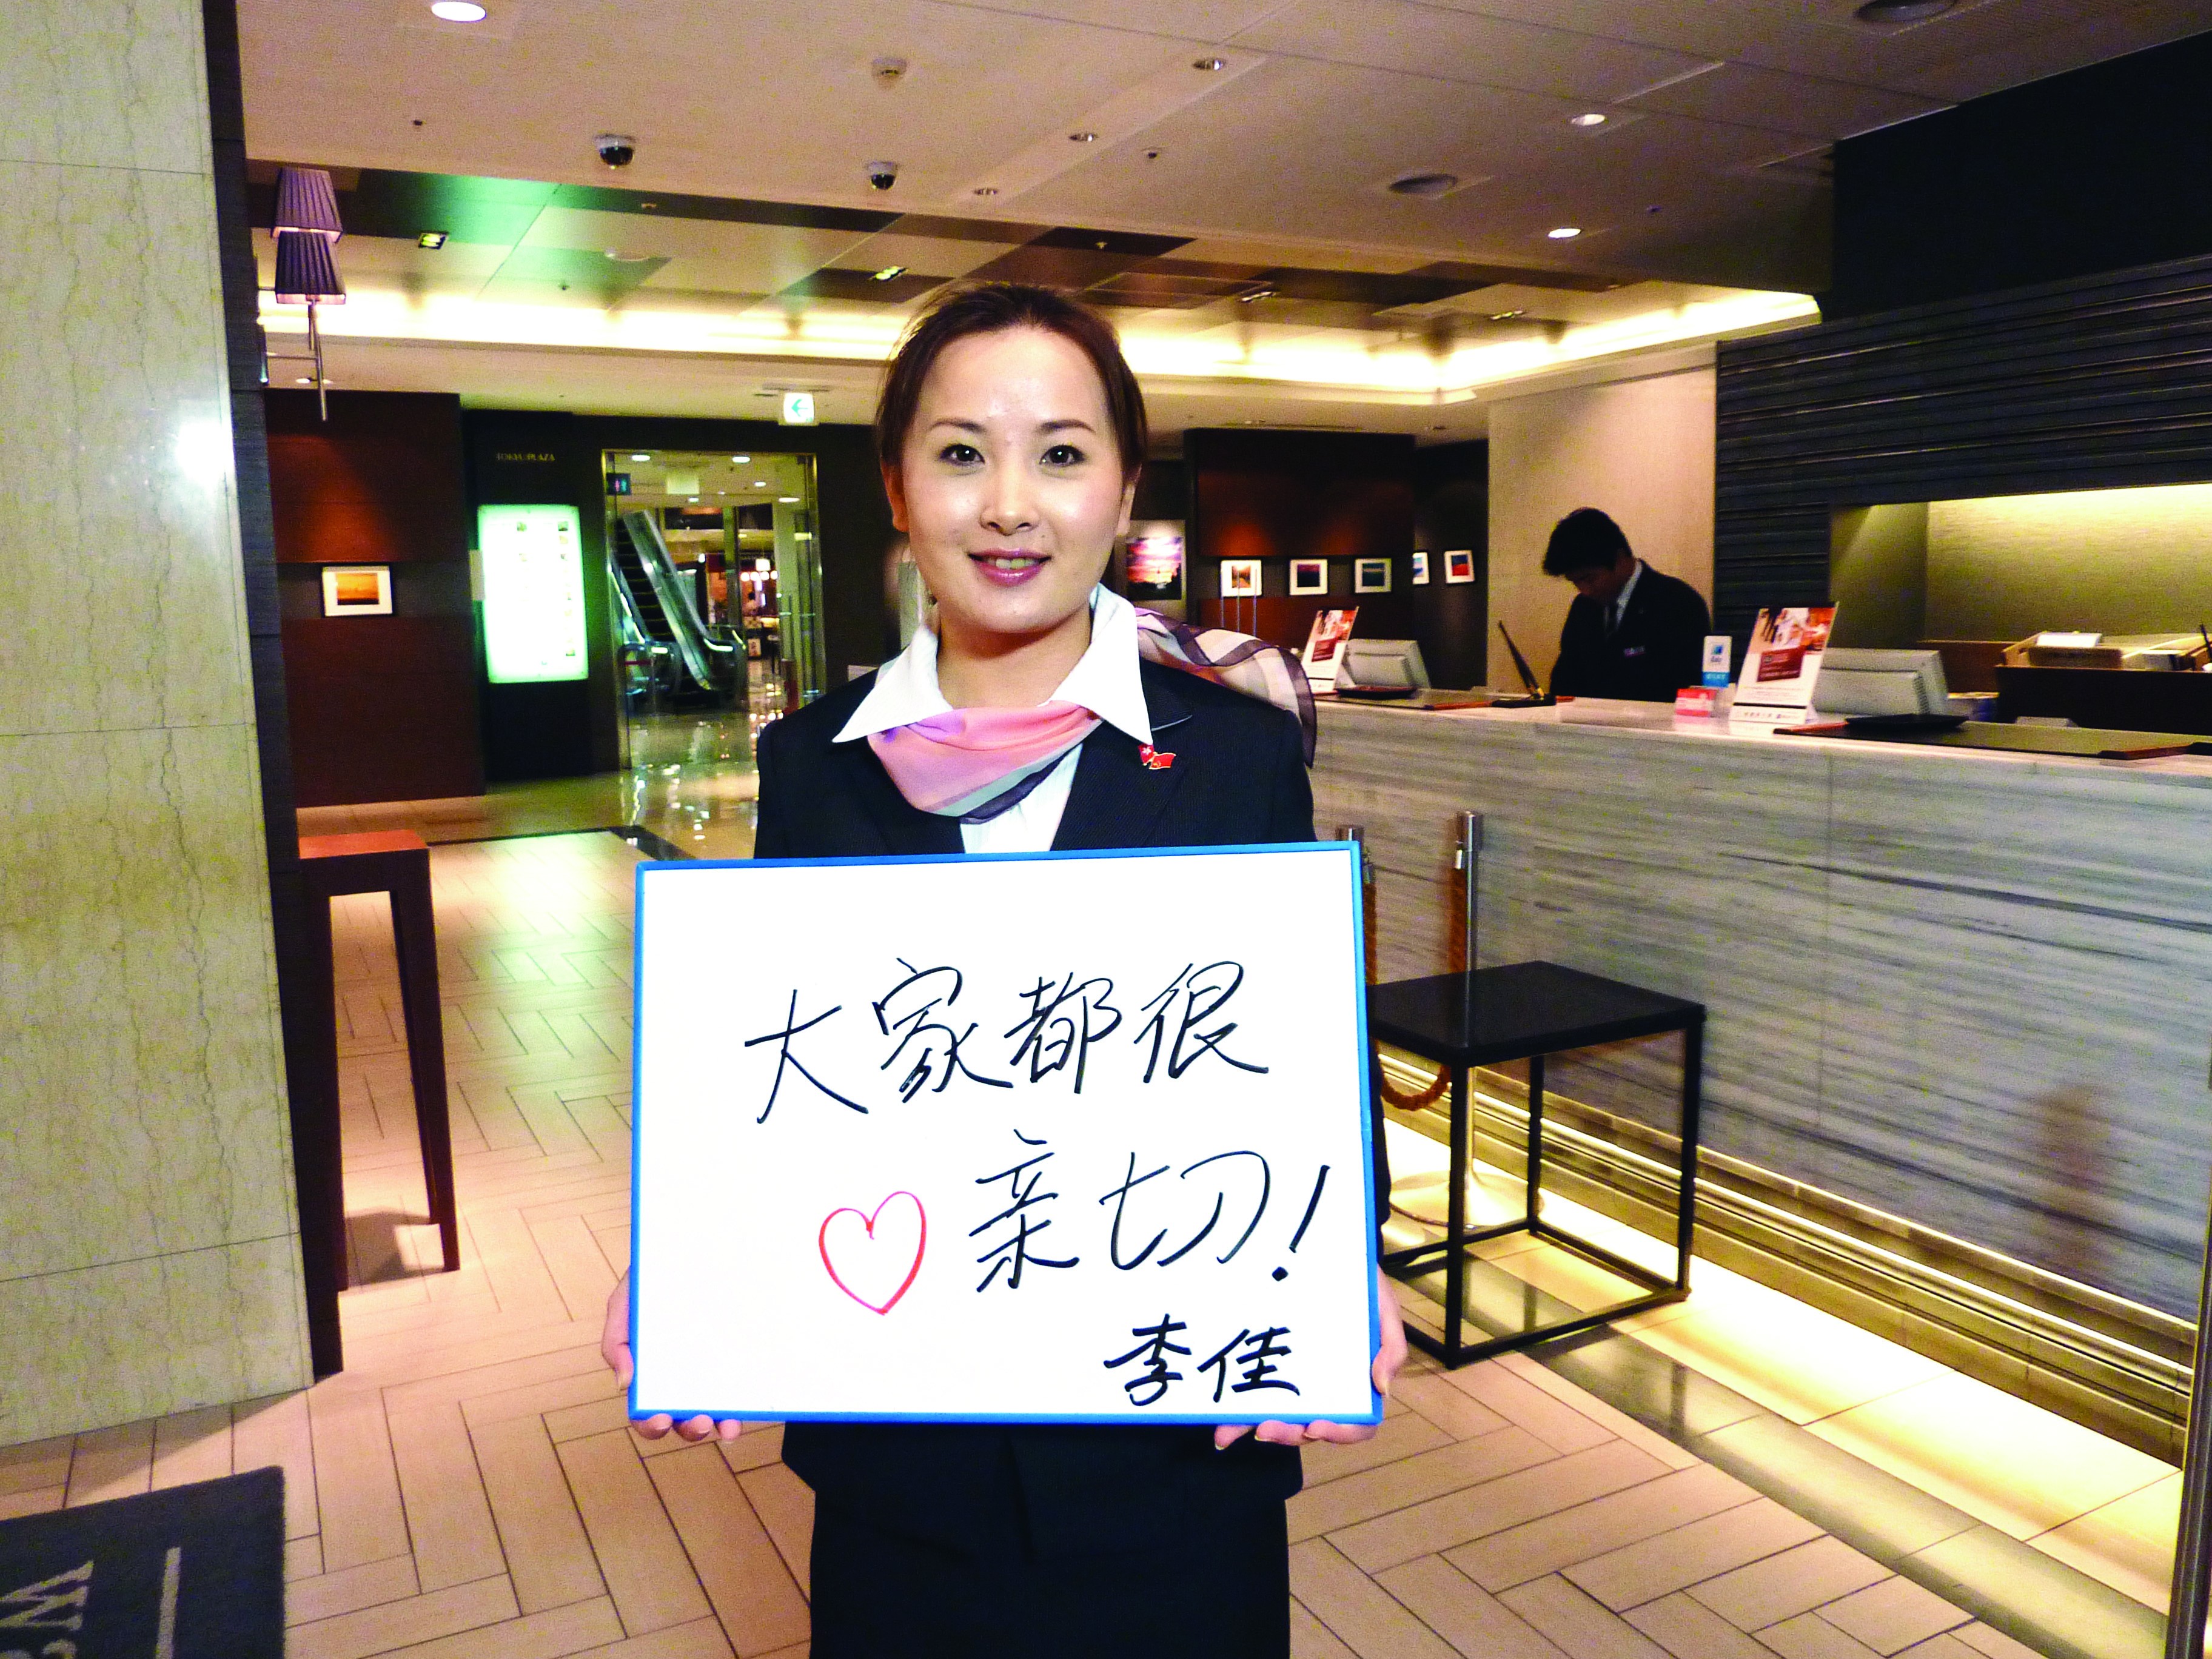 TOKYU PLAZA
大家都很
亲切!
李佳